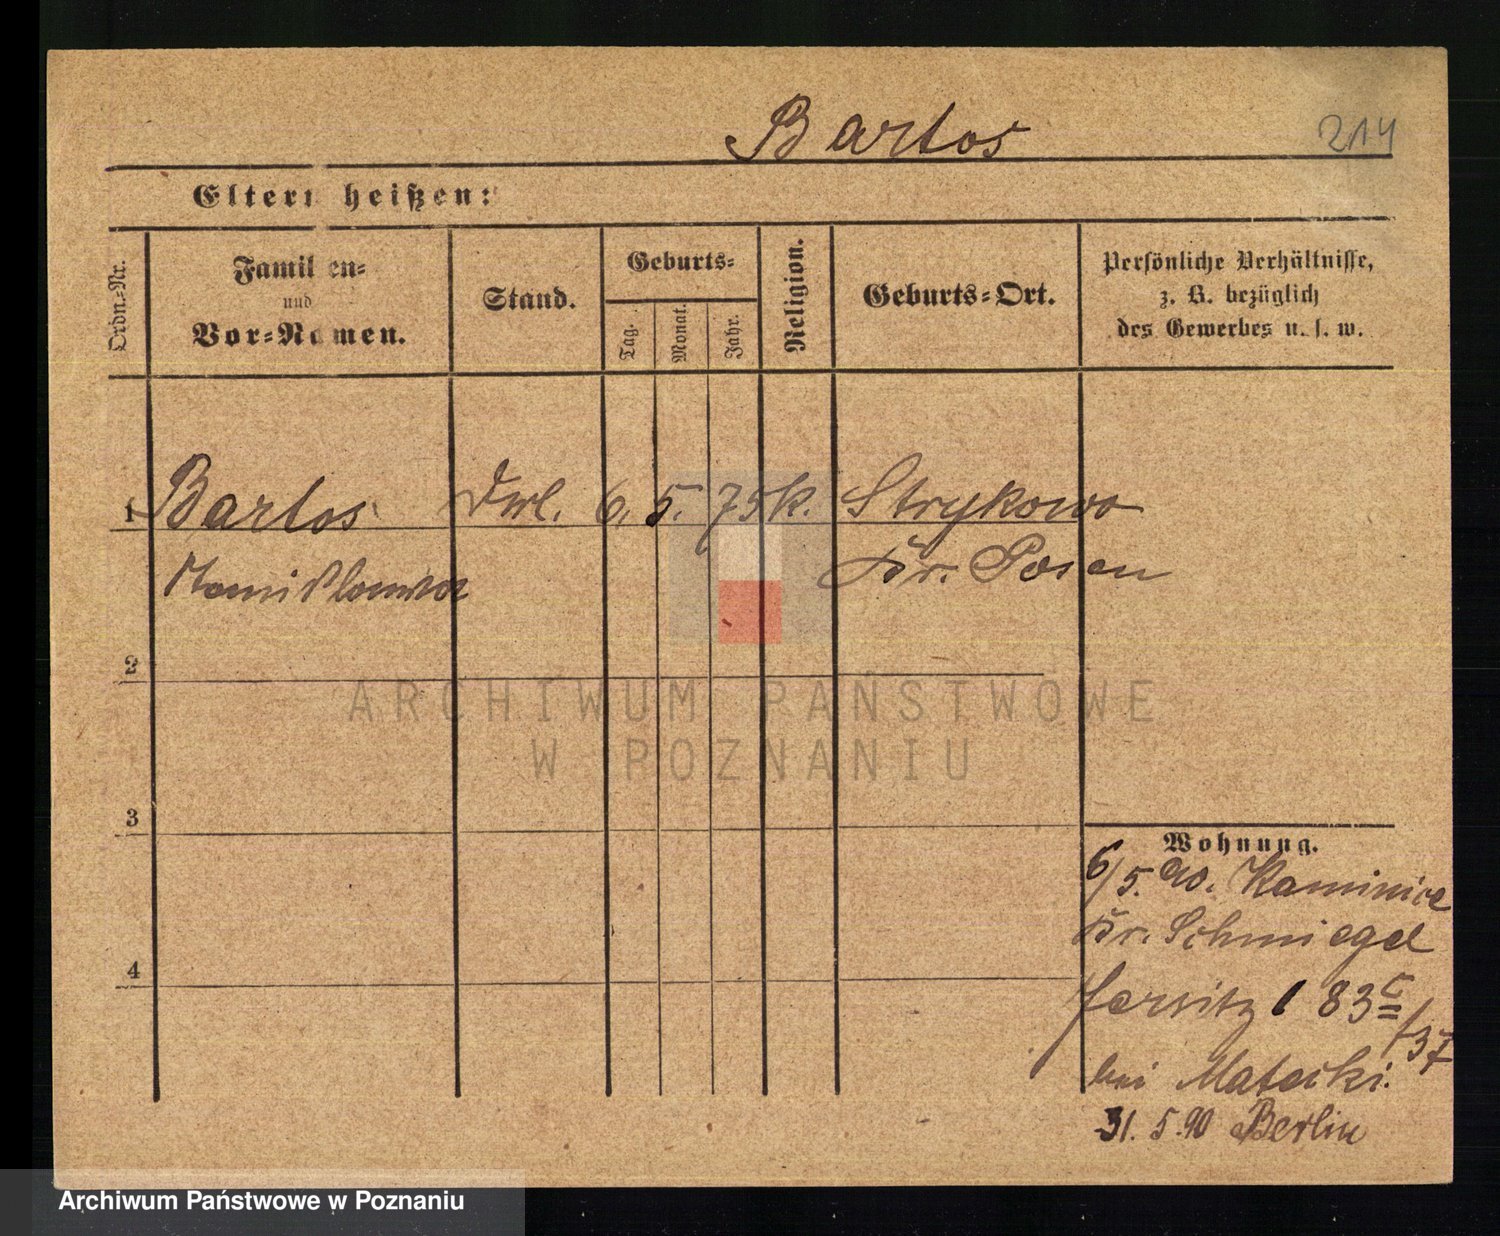 Bartos
214
Eltern heißen:
Ordn.-Nr.
Familien-
und
Vor-Namen.
Stand.
Geburts-
Tag.
Monat.
Jahr.
Religion.
Geburts-Ort.
Persönliche Verhältnisse,
z. B. bezüglich
des Gewerbes u. s. w.
1 Bartos 6. 5. 75 k. Strykowo
Stanislawa Kr. Posen
2
3
4
Wohnung.
6/5. 90. Kaminice
Kr. Schmiegel
Jersitz 83 c/37
bei Matecki.
31. 5. 90 Berlin
ARCHIWUM PAŃSTWOWE
W POZNANIU
Archiwum Państwowe w Poznaniu